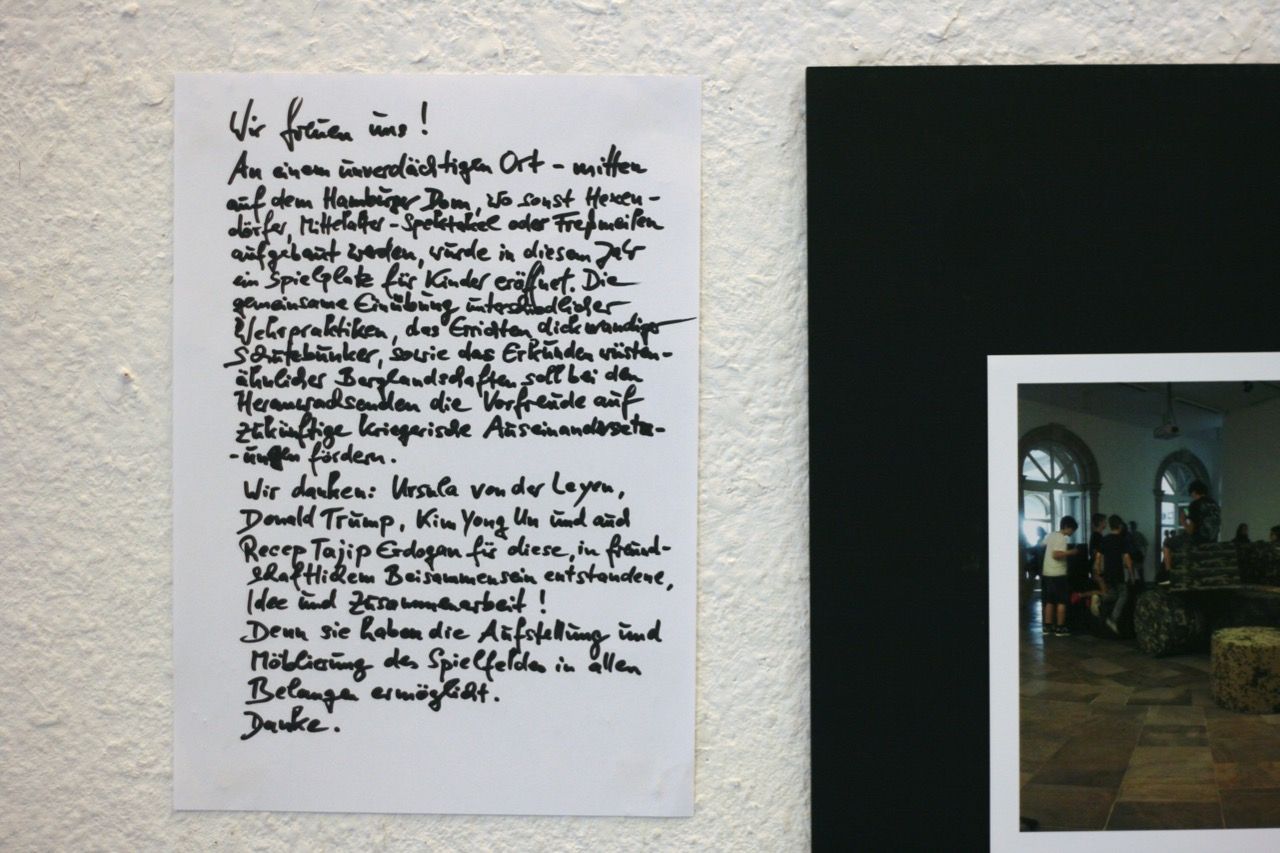 Wir freuen uns!
An einem unverdächtigen Ort – mitten
auf dem Hamburger Dom, wo sonst Hexen-
dörfer, Mittelalter-Spektakel oder Freßmeilen
aufgebaut werden, wurde in diesem Jahr
ein Spielplatz für Kinder eröffnet. Die
gemeinsame Einübung unterschiedlicher
Wehrpraktiken, das Errichten dickwandiger
Schutzbunker, sowie das Erkunden wüsten-
ähnlicher Berglandschaften soll bei den
Heranwachsenden die Vorfreude auf
zukünftige kriegerische Auseinandersetz-
-ungen fördern.
Wir danken: Ursula von der Leyen,
Donald Trump, Kim Yong Un und auch
Recep Tajip Erdogan für diese, in freund-
schaftlichem Beisammensein entstandene,
Idee und Zusammenarbeit!
Denn sie haben die Aufstellung und
Möblierung des Spielfeldes in allen
Belangen ermöglicht.
Danke.